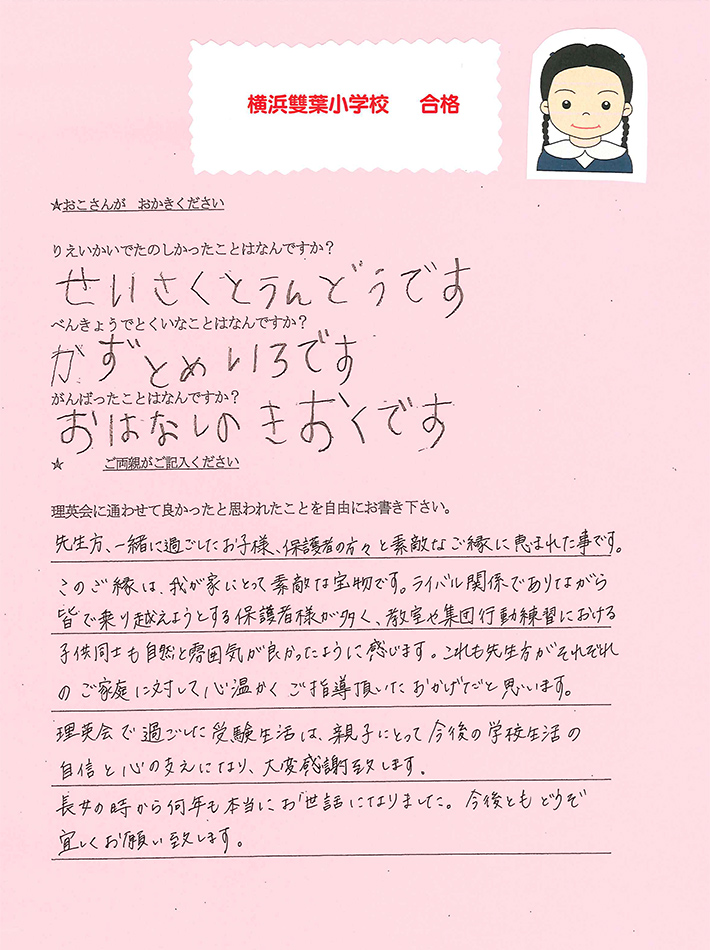 横浜雙葉小学校　合格
☆おこさんが　おかきください
りえいかいでたのしかったことはなんですか？
せいさくとうんどうです
べんきょうでとくいなことはなんですか？
かずとめいろです
がんばったことはなんですか？
おはなしのきおくです
☆　ご両親がご記入ください
理英会に通わせて良かったと思われたことを自由にお書き下さい。
先生方、一緒に過ごしたお子様、保護者の方々と素敵なご縁に恵まれた事です。
このご縁は、我が家にとって素敵な宝物です。ライバル関係でありながら
皆で乗り越えようとする保護者様が多く、教室や集団行動練習における
子供同士も自然と雰囲気が良かったように感じます。これも先生方がそれぞれ
のご家庭に対して心温かくご指導頂いたおかげだと思います。
理英会で過ごした受験生活は、親子にとって今後の学校生活の
自信と心の支えになり、大変感謝致します。
長女の時から何年も本当にお世話になりました。今後ともどうぞ
宜しくお願い致します。